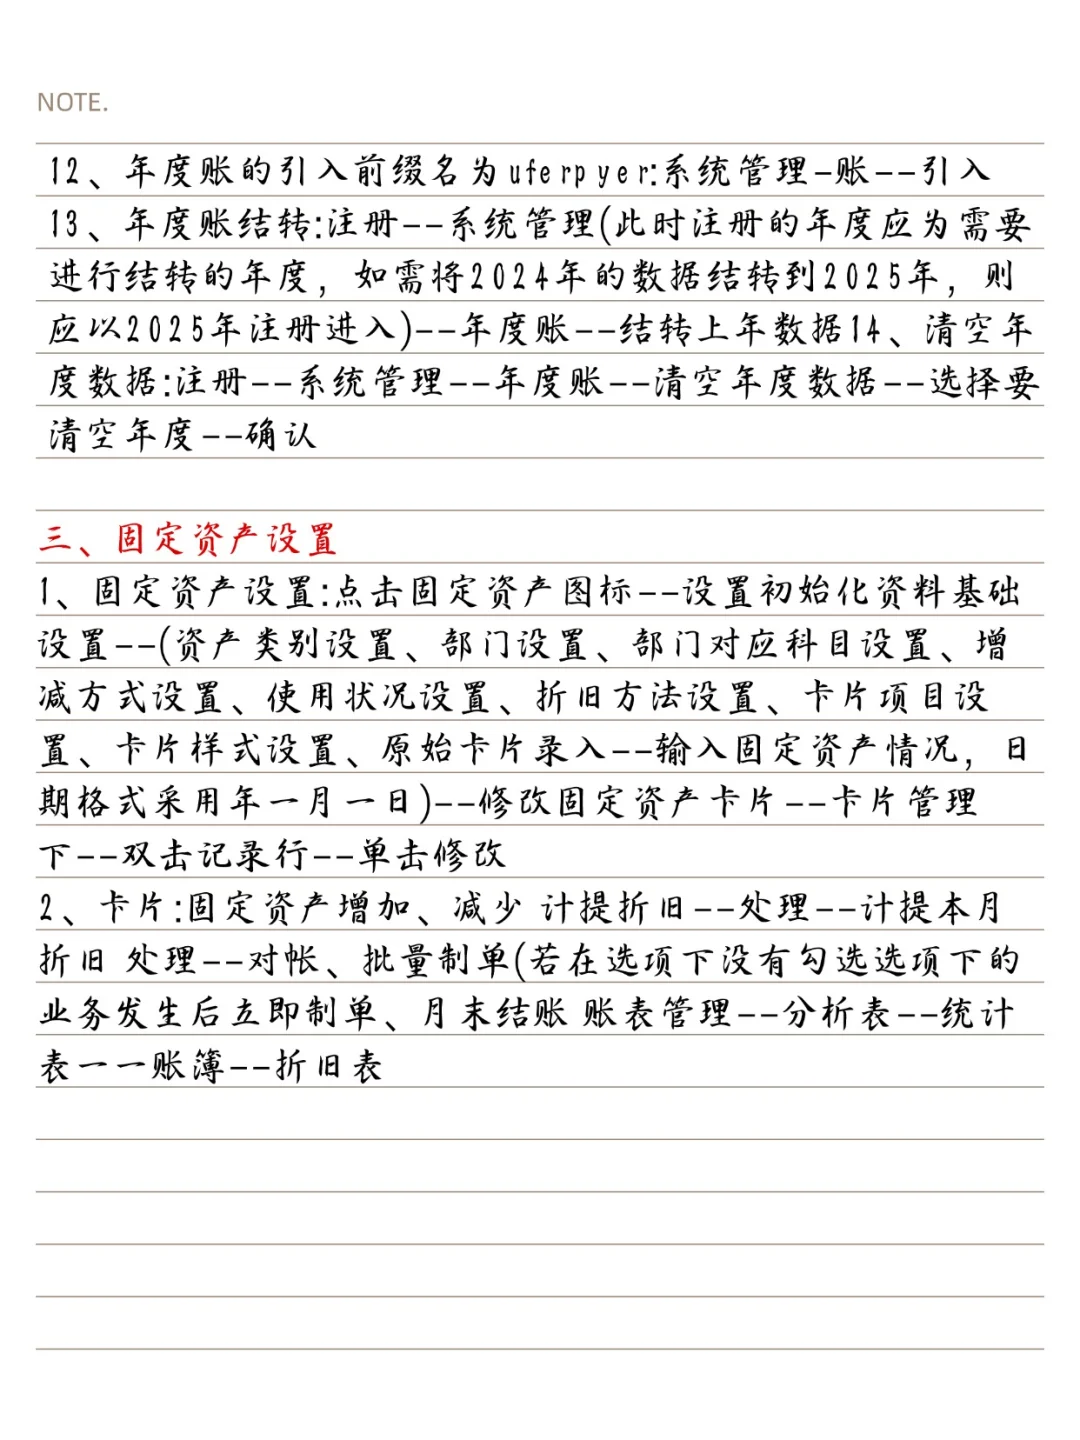 NOTE.
12、年度账的引入前缀名为uferpyer:系统管理-账--引入
13、年度账结转:注册--系统管理(此时注册的年度应为需要
进行结转的年度，如需将2024年的数据结转到2025年，则
应以2025年注册进入)--年度账--结转上年数据14、清空年
度数据:注册--系统管理--年度账--清空年度数据--选择要
清空年度--确认
三、固定资产设置
1、固定资产设置:点击固定资产图标--设置初始化资料基础
设置--(资产类别设置、部门设置、部门对应科目设置、增
减方式设置、使用状况设置、折旧方法设置、卡片项目设
置、卡片样式设置、原始卡片录入--输入固定资产情况，日
期格式采用年一月一日)--修改固定资产卡片--卡片管理
下--双击记录行--单击修改
2、卡片:固定资产增加、减少 计提折旧--处理--计提本月
折旧 处理--对帐、批量制单(若在选项下没有勾选选项下的
业务发生后立即制单、月末结账 账表管理--分析表--统计
表一一账簿--折旧表